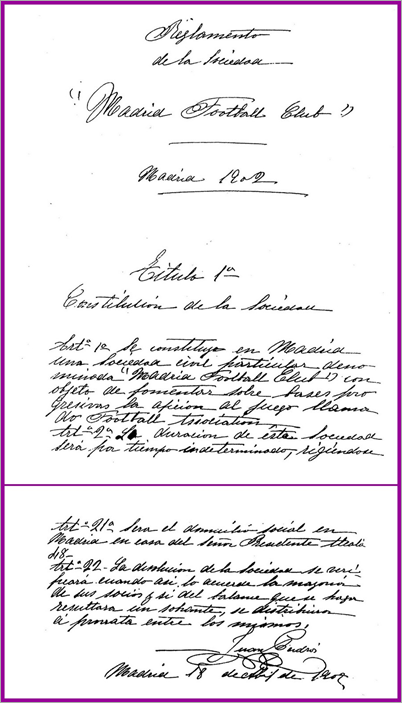 Reglamento
de la Sociedad
"Madrid Football Club"
Madrid 1902
Titulo 1º
Constitución de la Sociedad
Artº 1º Se constituye en Madrid
una Sociedad civil particular deno
minada "Madrid Football Club" con
objeto de fomentar sobre bases pro
gresivas la aficion al juego llama
do Football Association
Artº 2º La duracion de ésta Sociedad
sera por tiempo indeterminado, rigiéndose
Artº 21º Sera el domicilio social en
Madrid en casa del Señor Presidente Alcalá
48-
Artº 22- La disolución de la Sociedad se veri
ficará cuando asi lo acuerde la mayoria
de sus socios y si del balance que se haga
resultara un sobrante, se distribuira
á prorrata entre los mismos.
Juan Padrós
Madrid 18 de Abl de 1902